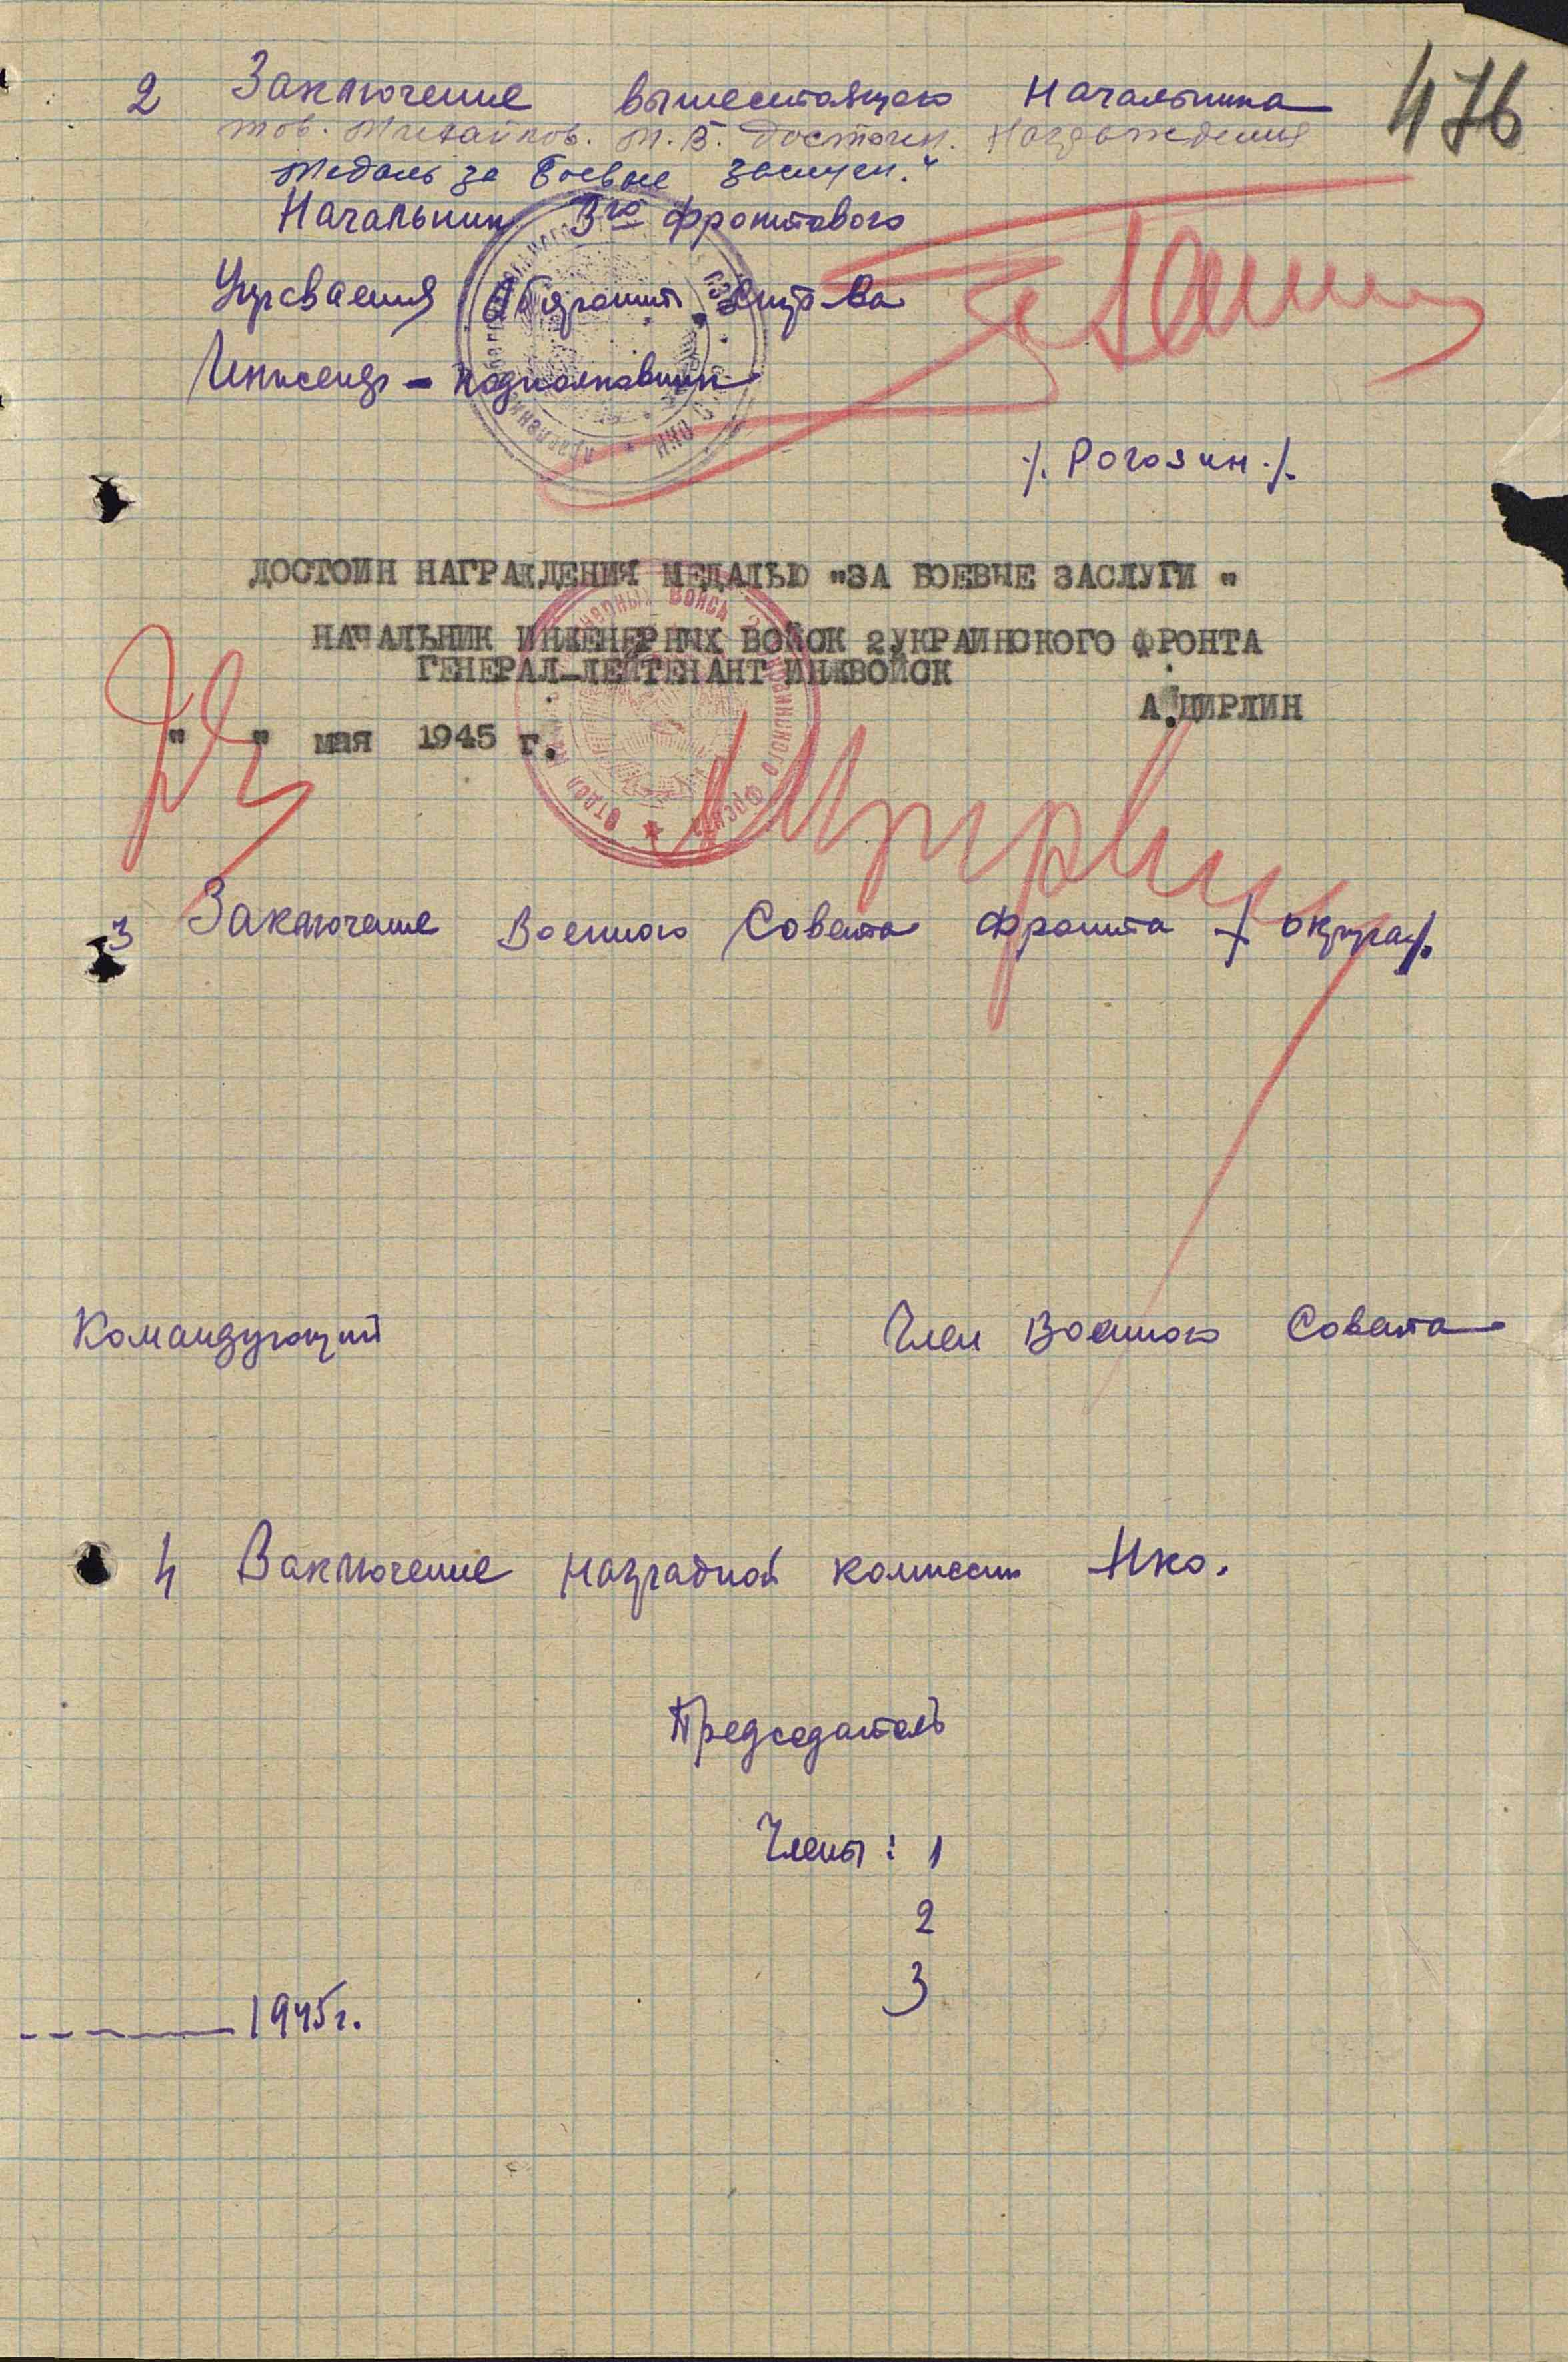 476
2 Заключение вышестоящего Начальника
тов. Михайлов. М.В. Достоин. Награждения
Медаль за Боевые заслуги."
Начальник 3го фронтового
Управления Оборонит. Стр-ва
Инженер - подполковник
/. Рогозин ./.
ДОСТОИН НАГРАЖДЕНИЯ МЕДАЛЬЮ "ЗА БОЕВЫЕ ЗАСЛУГИ "
НАЧАЛЬНИК ИНЖЕНЕРНЫХ ВОЙСК 2 УКРАИНСКОГО ФРОНТА
ГЕНЕРАЛ-ЛЕЙТЕНАНТ ИНЖВОЙСК
А.ЦИРЛИН
" " мая 1945 г.
3 Заключение Военного Совета фронта / округа/.
Командующий Член Военного Совета
4 Заключение наградной комиссии НКО.
Председатель
Члены : 1
2
3
1945г.